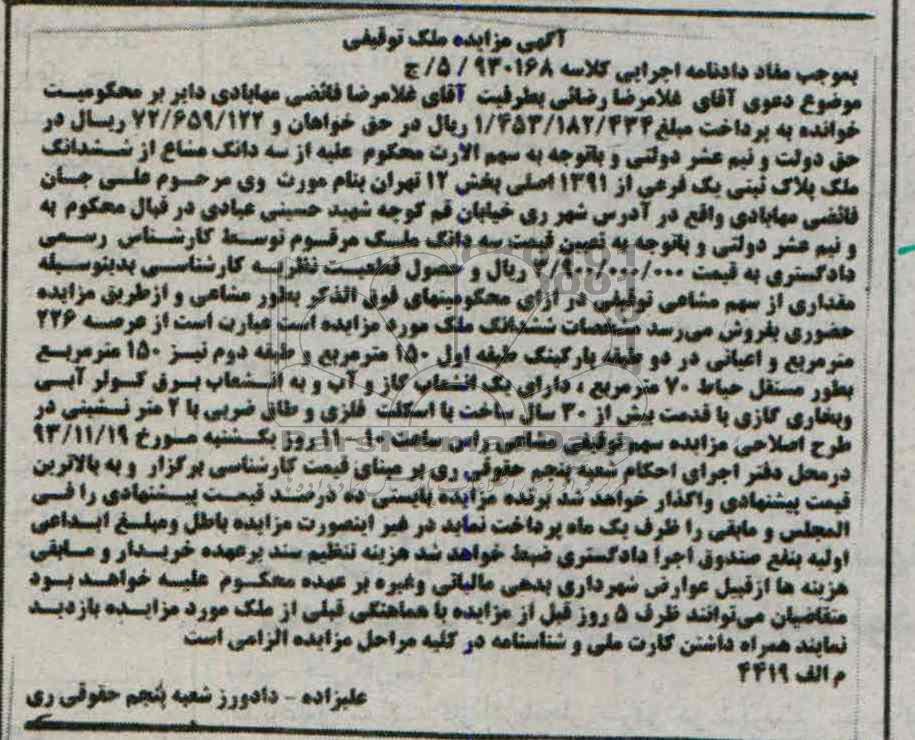 آگهی مزایده ملک توقیفی
بموجب مفاد دادنامه اجرایی کلاسه ۹۳۰۱۶۸ / ۵/ ج
موضوع دعوی آقای غلامرضا رضائی بطرفیت آقای غلامرضا فائضی مهابادی دایر بر محکومیت
خوانده به پرداخت مبلغ ۱/۴۵۳/۱۸۲/۴۳۴ ریال در حق خواهان و ۷۲/۶۵۹/۱۲۲ ریسال در
حق دولت و نیم عشر دولتی و باتوجه به سهم الارث محکوم علیه از سه دانک مشاع از ششدانک
ملک پلاک ثبتی یک فرعی از ۱۳۹۱ اصلی بخش ۱۲ تهران بنام مورث وی مرحوم علی جان
فائضی مهابادی واقع در آدرس شهر ری خیابان قم کوچه شهید حسینی عبادی در قبال محکوم به
و نیم عشر دولتی و باتوجه به تعیین قیمت سه دانک ملک مرقوم توسط کارشناس رسمی
دادگستری به قیمت ۲/۹۰۰/۰۰۰/۰۰۰ ریال و حصول قطعیت نظریه کارشناسی بدینوسیله
مقداری از سهم مشاعی توقیفی در ازای محکومیتهای فوق الذکر بطور مشاعی و ازطریق مزایده
حضوری بفروش می‌رسد مشخصات ششدانک ملک مورد مزایده است عبارت است از عرصه ۲۲۶
مترمربع و اعیانی در دو طبقه پارکینک طبقه اول ۱۵۰ مترمربع و طبقه دوم نیز ۱۵۰ مترمربع
بطور مستقل حیاط ۷۰ مترمربع ، دارای یک انشعاب گاز و آب و به انشعاب برق کولر آبی
وبخاری گازی با قدمت بیش از ۳۰ سال ساخت با اسکلت فلزی و طاق ضربی با ۲ متر نشینی در
طرح اصلاحی مزایده سهم توقیفی مشاعی راس ساعت ۱۰ الی ۱۱ روز یکشنبه مورخ ۹۳/۱۱/۱۹
درمحل دفتر اجرای احکام شعبه پنجم حقوقی ری بر مبنای قیمت کارشناسی برگزار و به بالاترین
قیمت پیشنهادی واگذار خواهد شد برنده مزایده بایستی ده درصد قیمت پیشنهادی را فی
المجلس و مابقی را ظرف یک ماه پرداخت نماید در غیر اینصورت مزایده باطل ومبلغ ابداعی
اولیه بنفع صندوق اجرا دادگستری ضبط خواهد شد هزینه تنظیم سند برعهده خریدار و مابقی
هزینه ها ازقبیل عوارض شهرداری بدهی مالیاتی وغیره بر عهده محکوم علیه خواهد بود
متقاضیان می‌توانند ظرف ۵ روز قبل از مزایده با هماهنگی قبلی از ملک مورد مزایده بازدید
نمایند همراه داشتن کارت ملی و شناسنامه در کلیه مراحل مزایده الزامی است
م الف ۴۴۱۹
علیزاده - دادورز شعبه پنجم حقوقی ری